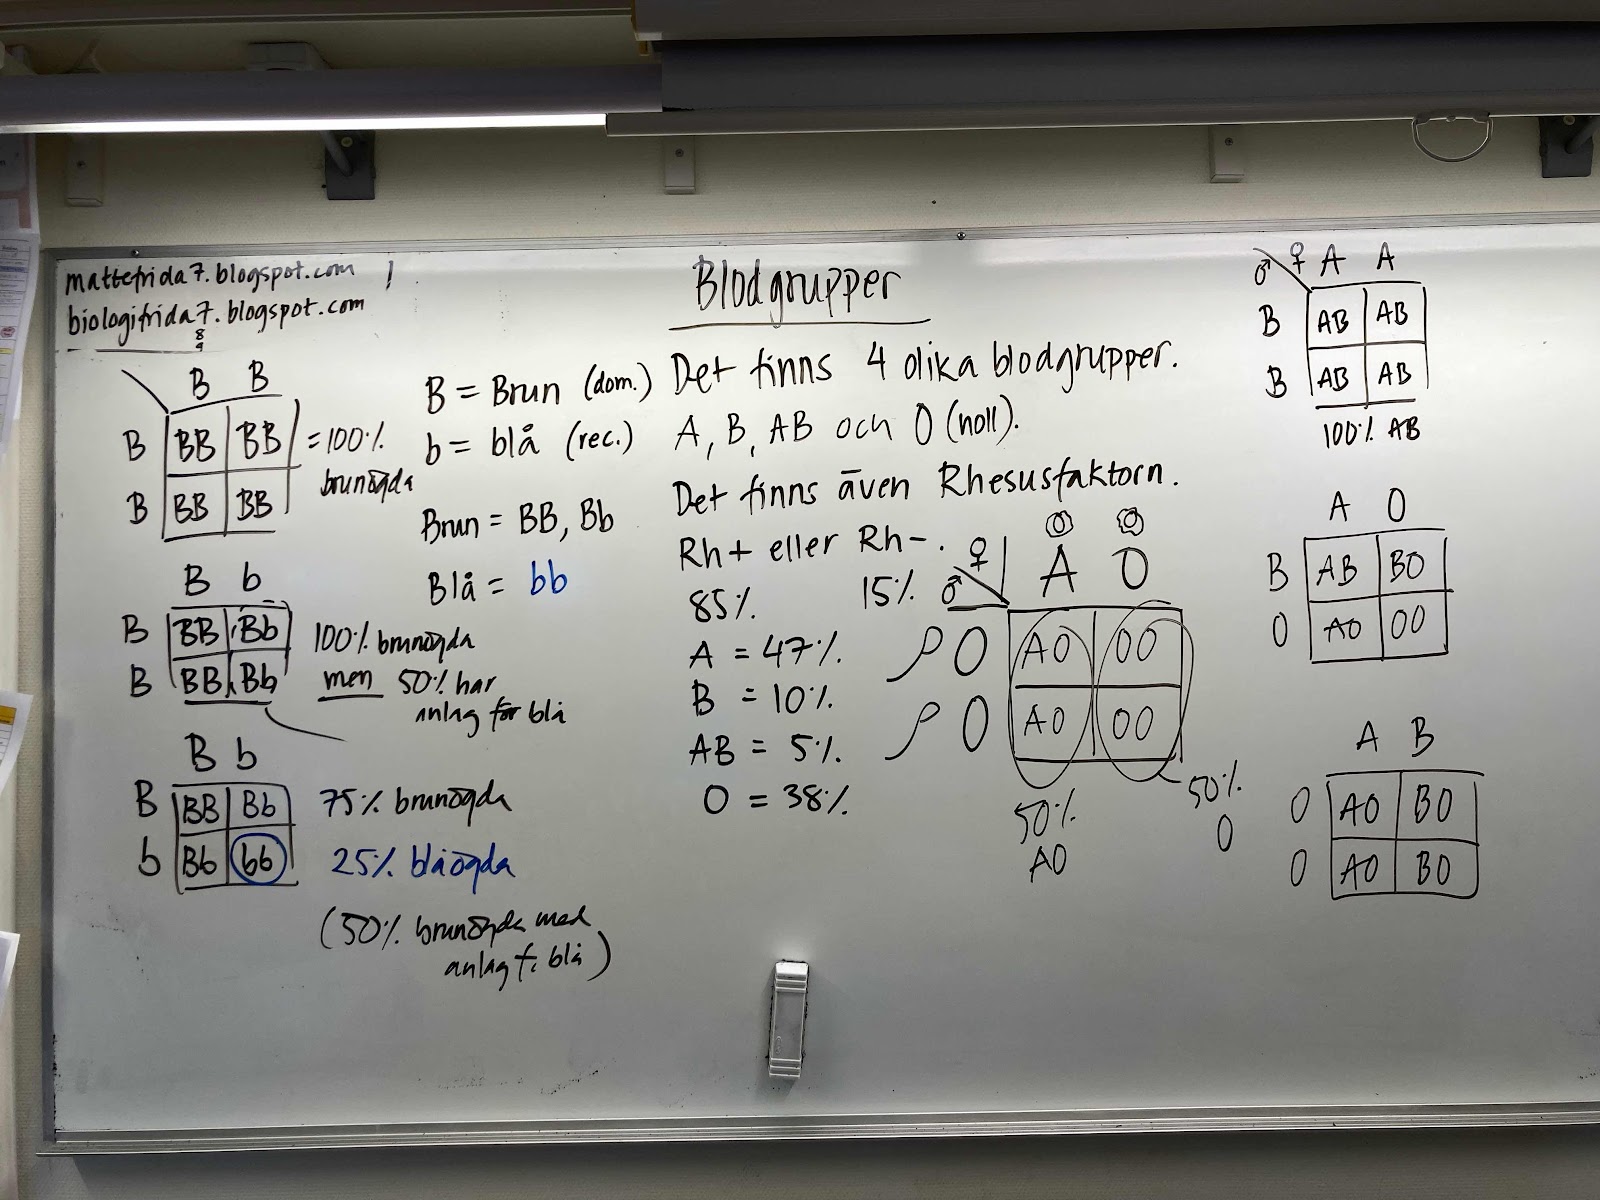 mattefrida7.blogspot.com
biologifrida7.blogspot.com
8
9
B B
B BB BB = 100%
brunögda
B BB BB
B b
B BB Bb 100% brunögda
B BB Bb men 50% har
anlag för blå
B b
B BB Bb 75% brunögda
b Bb bb 25% blåögda
(50% brunögda med
anlag f. blå)
B = Brun (dom.)
b = blå (rec.)
Brun = BB, Bb
Blå = bb
Blodgrupper
Det finns 4 olika blodgrupper.
A, B, AB och O (noll).
Det finns även Rhesusfaktorn.
Rh+ eller Rh-.
85% 15%
A = 47%
B = 10%
AB = 5%
O = 38%
♀ A O
♂
O AO OO
O AO OO
50%
AO
50%
O
♂ ♀ A A
B AB AB
B AB AB
100% AB
A O
B AB BO
O AO OO
A B
O AO BO
O AO BO